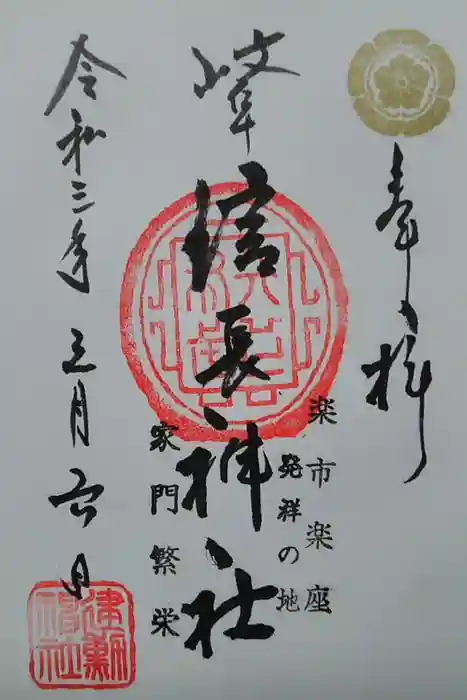 奉拝
楽市楽座
発祥の地
岐阜信長神社
家門繁栄
令和三年五月六日
建勲
神社